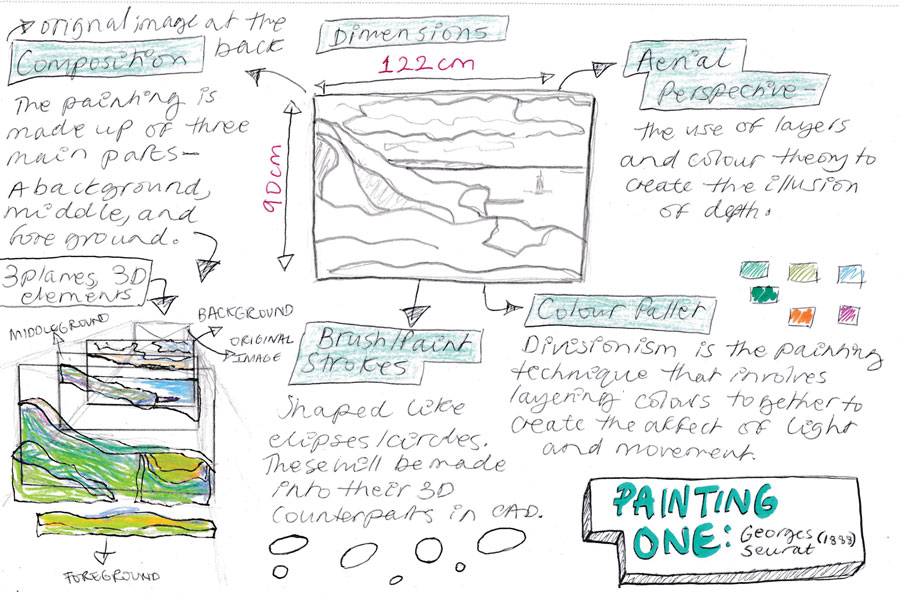 orignal image at the
back
Composition
The painting is
made up of three
main parts-
A background,
middle, and
foreground.
3 planes, 3D
elements
MIDDLEGROUND
BACKGROUND
ORIGINAL
IMAGE
FOREGROUND
Dimensions
122cm
90cm
Aerial
Perspective-
the use of layers
and colour theory to
create the illusion
of depth.
Brush/Paint
Strokes
Shaped like
elipses/circles.
These will be made
into their 3D
counterparts in CAD.
Colour Pallet
Divisionism is the painting
technique that involves
layering colours together to
create the affect of light
and movement.
PAINTING
ONE: Georges (1888)
Seurat